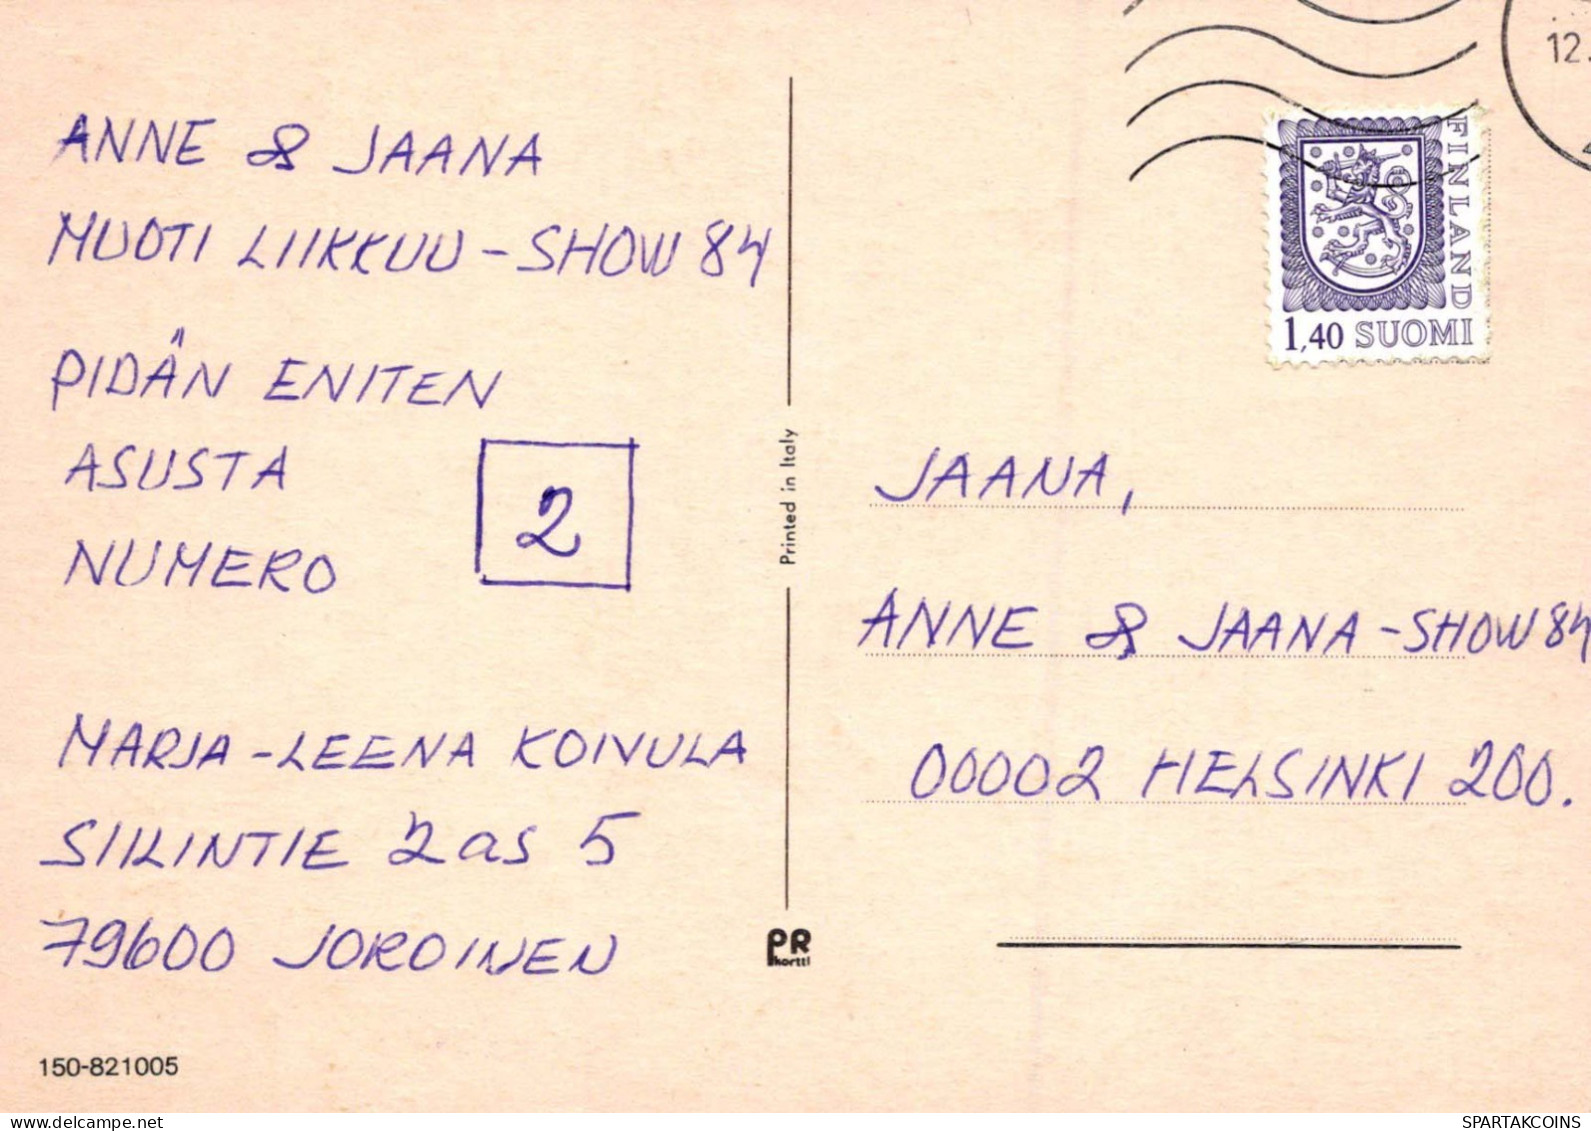 ANNE & JAANA
MUOTI LIIKKUU - SHOW 84
PIDÄN ENITEN
ASUSTA
NUMERO
2
MARJA-LEENA KOIVULA
SIILINTIE 2 as 5
79600 JOROINEN
150-821005
Printed in Italy
PR
kortti
12.
FINLAND
1,40 SUOMI
JAANA,
ANNE & JAANA - SHOW 84
00002 HELSINKI 200.
delcampe.net
SPARTAKCOINS